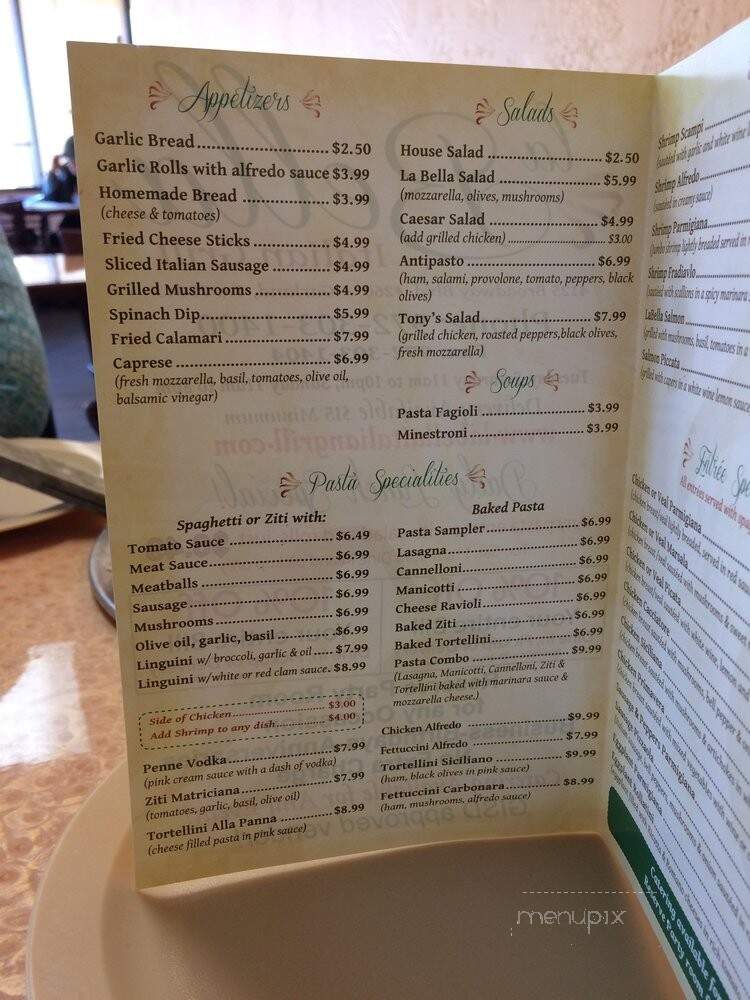 Appetizers
Garlic Bread $2.50
Garlic Rolls with alfredo sauce $3.99
Homemade Bread $3.99
(cheese & tomatoes)
Fried Cheese Sticks $4.99
Sliced Italian Sausage $4.99
Grilled Mushrooms $4.99
Spinach Dip $5.99
Fried Calamari $7.99
Caprese $6.99
(fresh mozzarella, basil, tomatoes, olive oil,
balsamic vinegar)
Salads
House Salad $2.50
La Bella Salad $5.99
(mozzarella, olives, mushrooms)
Caesar Salad $4.99
(add grilled chicken) $3.00
Antipasto $6.99
(ham, salami, provolone, tomato, peppers, black
olives)
Tony's Salad $7.99
(grilled chicken, roasted peppers,black olives,
fresh mozzarella)
Soups
Pasta Fagioli $3.99
Minestroni $3.99
Pasta Specialities
Spaghetti or Ziti with:
Tomato Sauce $6.49
Meat Sauce $6.99
Meatballs $6.99
Sausage $6.99
Mushrooms $6.99
Olive oil, garlic, basil $6.99
Linguini w/ broccoli, garlic & oil $7.99
Linguini w/white or red clam sauce $8.99
Side of Chicken $3.00
Add Shrimp to any dish $4.00
Penne Vodka $7.99
(pink cream sauce with a dash of vodka)
Ziti Matriciana $7.99
(tomatoes, garlic, basil, olive oil)
Tortellini Alla Panna $8.99
(cheese filled pasta in pink sauce)
Baked Pasta
Pasta Sampler $6.99
Lasagna $6.99
Cannelloni $6.99
Manicotti $6.99
Cheese Ravioli $6.99
Baked Ziti $6.99
Baked Tortellini $6.99
Pasta Combo $9.99
(Lasagna, Manicotti, Cannelloni, Ziti &
Tortellini baked with marinara sauce &
mozzarella cheese.)
Chicken Alfredo $9.99
Fettuccini Alfredo $7.99
Tortellini Siciliano $9.99
(ham, black olives in pink sauce)
Fettuccini Carbonara $8.99
(ham, mushrooms, alfredo sauce)
Shrimp Scampi
(sauteed with garlic and white wine
Shrimp Alfredo
(sauteed in creamy sauce)
Shrimp Parmigiana
(jumbo shrimp lightly breaded served in
Shrimp Fradiavlo
(sauteed with scallions in a spicy marinara
LaBella Salmon
(grilled with mushrooms, basil, tomatoes in a
Salmon Piccata
(grilled with capers in a white wine lemon sauce
Entrée Spe
All entrees served with
Chicken or Veal Parmigiana
Chicken or Veal Marsala
Chicken or Veal Picata
Chicken Cacciatore
Chicken Siciliana
Chicken Primavera
Sausage & Peppers Parmigiana
Sausage Pizzaiola
Eggplant Parmigiana
Eggplant Rollatini
Catering available for
Reserve Party room
menupix